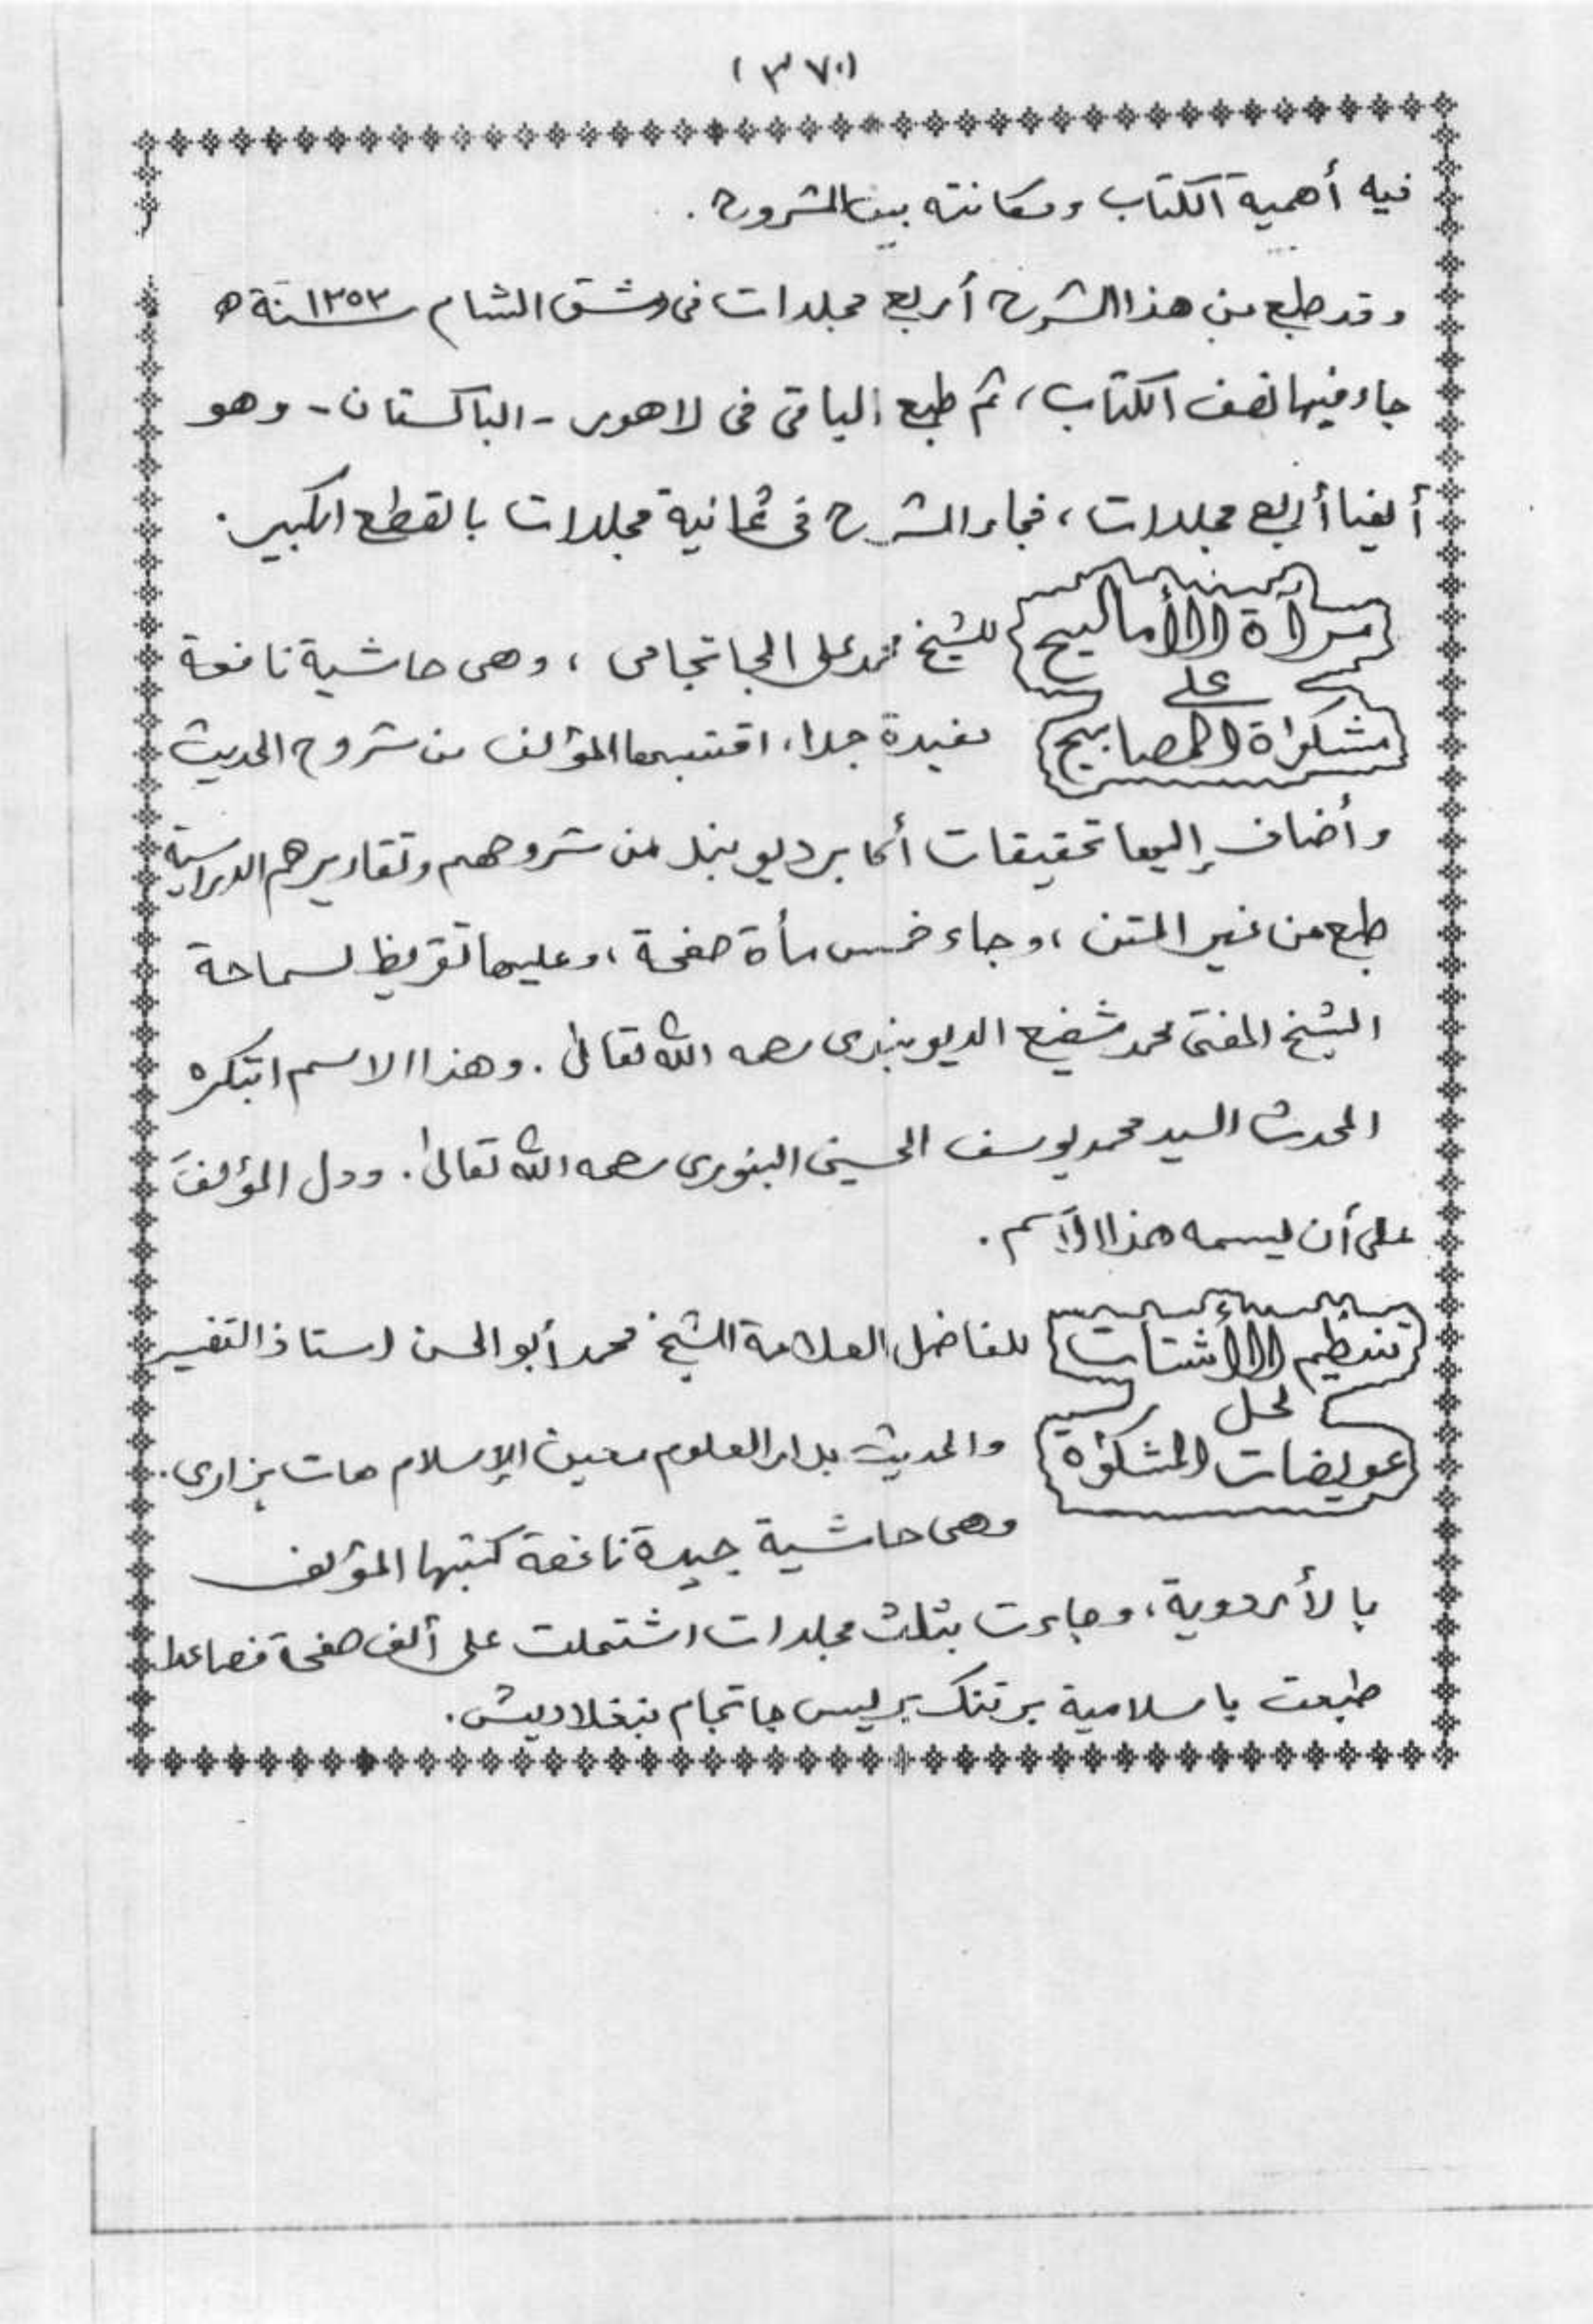 (٣٧٠)
فيه أهمية الكتاب ومكانته بين الشروح .
وقد طبع من هذا الشرح أربع مجلدات فى دمشق الشام سنة ١٣٥٣ ه
جاء فيها نصف الكتاب، ثم طبع الباقى فى لاهور - الباكستان - وهو
أيضا أربع مجلدات، فجاء الشرح فى ثمانية مجلدات بالقطع الكبير.
مرآة الأماليح للشيخ محمد على الجاتجامى ، وهى حاشية نافعة
على
مشكواة المصابيح مفيدة جدا، اقتبسها المؤلف من شروح الحديث
وأضاف إليها تحقيقات أكابر ديوبند من شروحهم وتقاريرهم الدراسية
طبع من غير المتن ، وجاء خمس مأة صفحة ، وعليها تقريظ لسماحة
الشيخ المفتى محمد شفيع الديوبندى رحمه الله تعالى . وهذا الاسم ابتكره
المحدث السيد محمد يوسف الحسينى البنورى رحمه الله تعالى . ودل المؤلفَ
على أن يسمه هذا الاسم .
تنظيم الأشتات للفاضل العلامة الشيخ محمد أبو الحسن استاذ التفسير
لحل
عويضات المشكوٰة والحديث بدار العلوم معين الإسلام هات هزارى .
وهى حاشية جيدة نافعة كتبها المؤلف
بالأردوية ، وجاءت بثلث مجلدات اشتملت على ألف صفحة فصاعدا
طبعت باسلامية برتنك بريس جاتجام بنغلاديش .